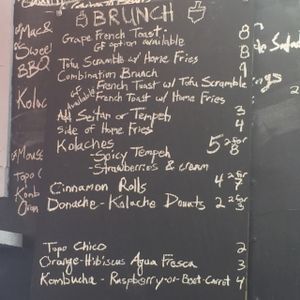 BRUNCH
Grape French Toast 8
GF option available
Tofu Scramble w/ Home Fries 8
Combination Brunch 9
GF Available
- French Toast w/ Tofu Scramble
- French Toast w/ Home Fries
Add Seitan or Tempeh 3
Side of Home Fries 4
Kolaches 5 2 for 8
- Spicy Tempeh
- Strawberries & cream
Cinnamon Rolls 4 2 for 7
Donache - Kolache Donuts 2 2 for 3
Topo Chico 2
Orange-Hibiscus Agua Fresca 3
Kombucha - Raspberry-or-Beet-Carrot 4
Mac &
Sweet
BBQ
Kolac
Mouse
Topo C
Komb